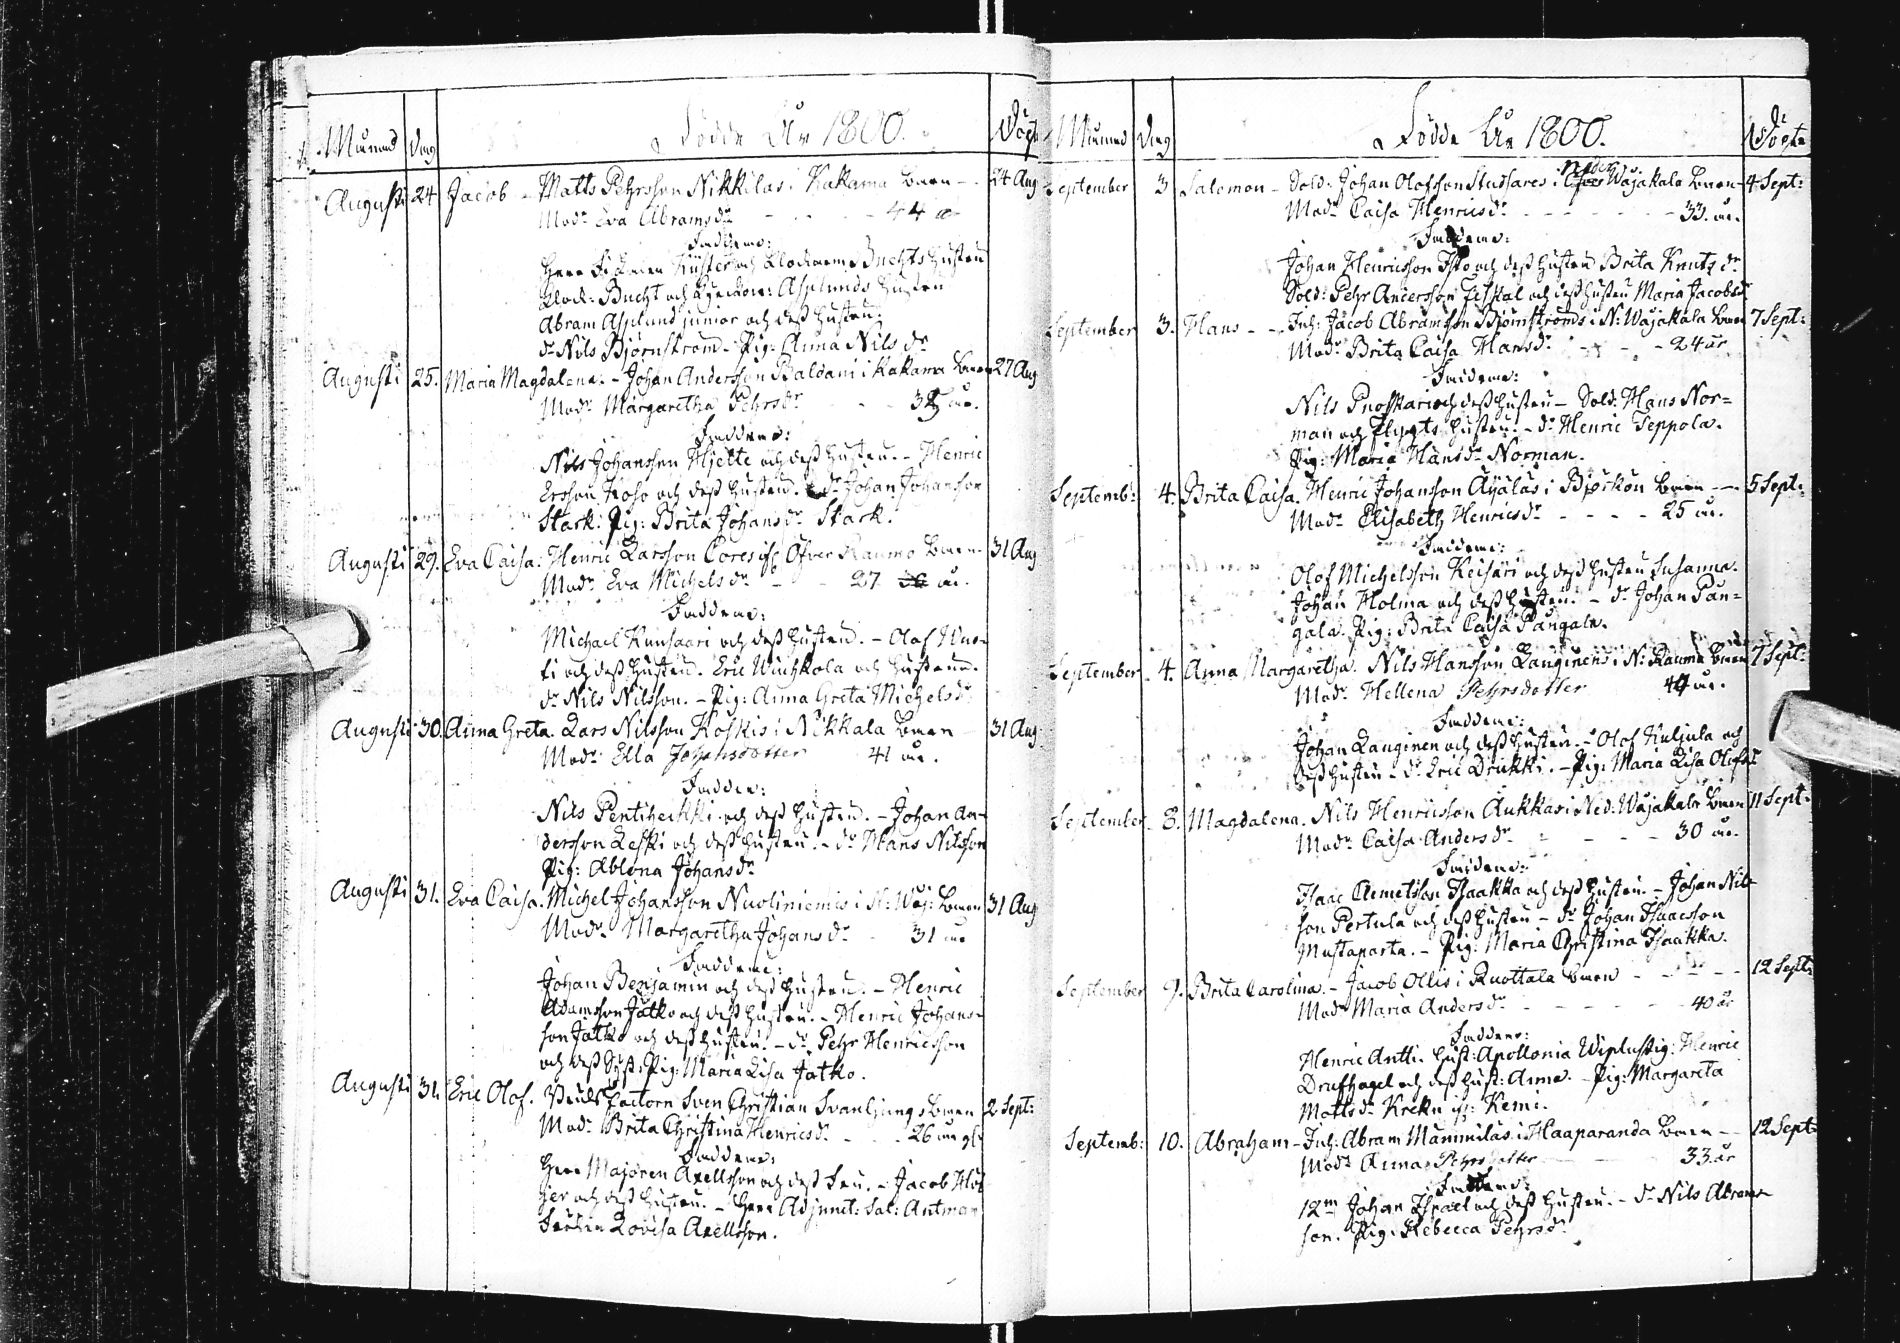 Månad Dag Födde År 1800. Döpt
Augusti 24 Jacob - Matts Pehrsson Nikkilas i Kakama barn - 24 Aug
Modr Eva Abramsdr - - - 44 år
Faddrar:
Herr och Klockaren Buchts hustru
Klock: Bucht och Asplunds hustru
Abram Asplund junior och dess hustru.
dr Nils Björnström - Pig: Anna Nilsdr
Augusti 25. Maria Magdalena. - Johan Andersson Raldani i Kakama barn 27 Aug
Modr Margaretha Pehrsdr - - år.
Faddrar:
Nils Johansson Hjette och dess hustru. - Henric
Ersson Koho och dess hustru. dr Johan Johansson
Stark. Pig: Brita Johansdr Stark.
Augusti 29. Eva Caisa: Henric Larsson i Öfver Raumo barn - 31 Aug
Modr Eva Michelsdr - - 27 år.
Faddrar:
Michael Kunsaari och dess hustru. - Olof
och dess hustru. Eric Wuihkola och hustru.
dr Nils Nilsson. - Pig: Anna Greta Michelsdr
Augusti 30. Anna Greta. Lars Nilsson Koskis i Nikkala barn - 31 Aug
Modr Ella Johansdotter 41 år.
Faddrar:
Nils Pentiheikki och dess hustru. - Johan An-
dersson Leski och dess hustru. - dr Hans Nilsson
Pig: Ablona Johansdr
Augusti 31. Eva Caisa. Michel Johansson Nuoliniemis i N: Wåj: barn 31 Aug
Modr Margaretha Johansdr - 31 år
Faddrar:
Johan Benjamin och dess hustru. - Henric
Adamsson Jatko och dess hustru. - Henric Johans-
son Jatko och dess hustru. - dr Pehr Henricsson
och dess Syst: Pig: Maria Lisa Jatko.
Augusti 31. Eric Olof. factorn Sven Christian Svanljungs barn 2 Sept:
Modr Brita Christina Henricsdr - - 26 år gl
Faddrar:
Herr Majoren Axellsson och dess Fru. - Jacob
och dess hustru. - Herr Adjunct: Sal: Antman
Fröken Lovisa Axellsson.
Månad Dag Födde År 1800. Döpte
September 3 Salomon - Sold: Johan Olofsson Stussares i Neder Wåjakala barn - 4 Sept:
Modr Caisa Henricsdr - - - 33. år.
Faddrar:
Johan Henricsson Isto och dess hustru Brita Knutsdr
Sold: Pehr Andersson Fiskal och dess hustru Maria Jacobsdr
September 3. Hans - - Inh: Jacob Abramsson Björnströms i N: Wåjakala barn 7 Sept:
Modr Brita Caisa Hansdr - - - 24 år
Faddrar:
Nils Pnoskari och dess hustru - Sold: Hans Nor=
man och Flygts hustru. - dr Henric Seppola.
Pig: Maria Hansdr Norman.
Septemb: 4. Brita Caisa. Henric Johansson Äyäläs i Björkön barn - 5 Sept:
Modr Elisabeth Henricsdr - - - - 25 år.
Faddrar:
Olof Michelsson Keisari och dess hustru Susanna.
Johan Holma och dess hustru. - dr Johan Pan=
gala. Pig: Brita Caisa Pangala.
September 4. Anna Margaretha. Nils Hansson Langinens i N: Rauma barn 7 Sept:
Modr Hellena Pehrsdotter 44 år.
Faddrar:
Johan Langinen och dess hustru. - Olof Kuljula och
dess hustru - dr Eric Drickki. - Pig: Maria Lisa Olofsdr
September 8. Magdalena. Nils Henricsson Aukkas i Ned: Wåjakala barn 11 Sept:
Modr Caisa Andersdr - - - 30 år.
Faddrar:
Isaac Clemetsson Isaakka och dess hustru. - Johan Nils
son Pertula och dess hustru - dr Johan Isaacsson
Mustaparta. - Pig: Maria Christina Isaakka.
September 9. Brita Carolina. - Jacob Ollis i Ruottala barn - - - 12 Sept:
Modr Maria Andersdr - - - 40 år
Faddrar:
Henric Antti. Hust: Apollonia Henric
Drufhagel och dess hust: Anna. - Pig: Margareta
Mattsdr Kreku Kemi.
Septemb: 10. Abraham - Inh: Abram Mämmiläs i Haaparanda barn - 12 Sept:
Modr Anna Pehrsdotter - - 33 år
Faddrar:
12m Johan Israel och dess hustru. - dr Nils Abrams
son. Pig: Rebecca Pehrsdr